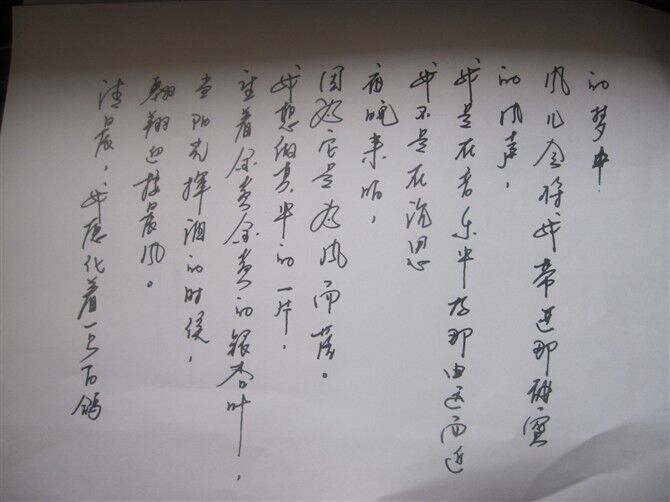 清晨，我愿化着一只百鸽
翱翔迎接晨风。
当阳光挥洒的时侯，
望着金黄金黄的银杏叶，
我想做其中的一片，
因为它是为风而落。
夜晚来临，
我不是在沉思
我是在音乐中那由远而近
的风声，
风儿会将我带进那
的梦中